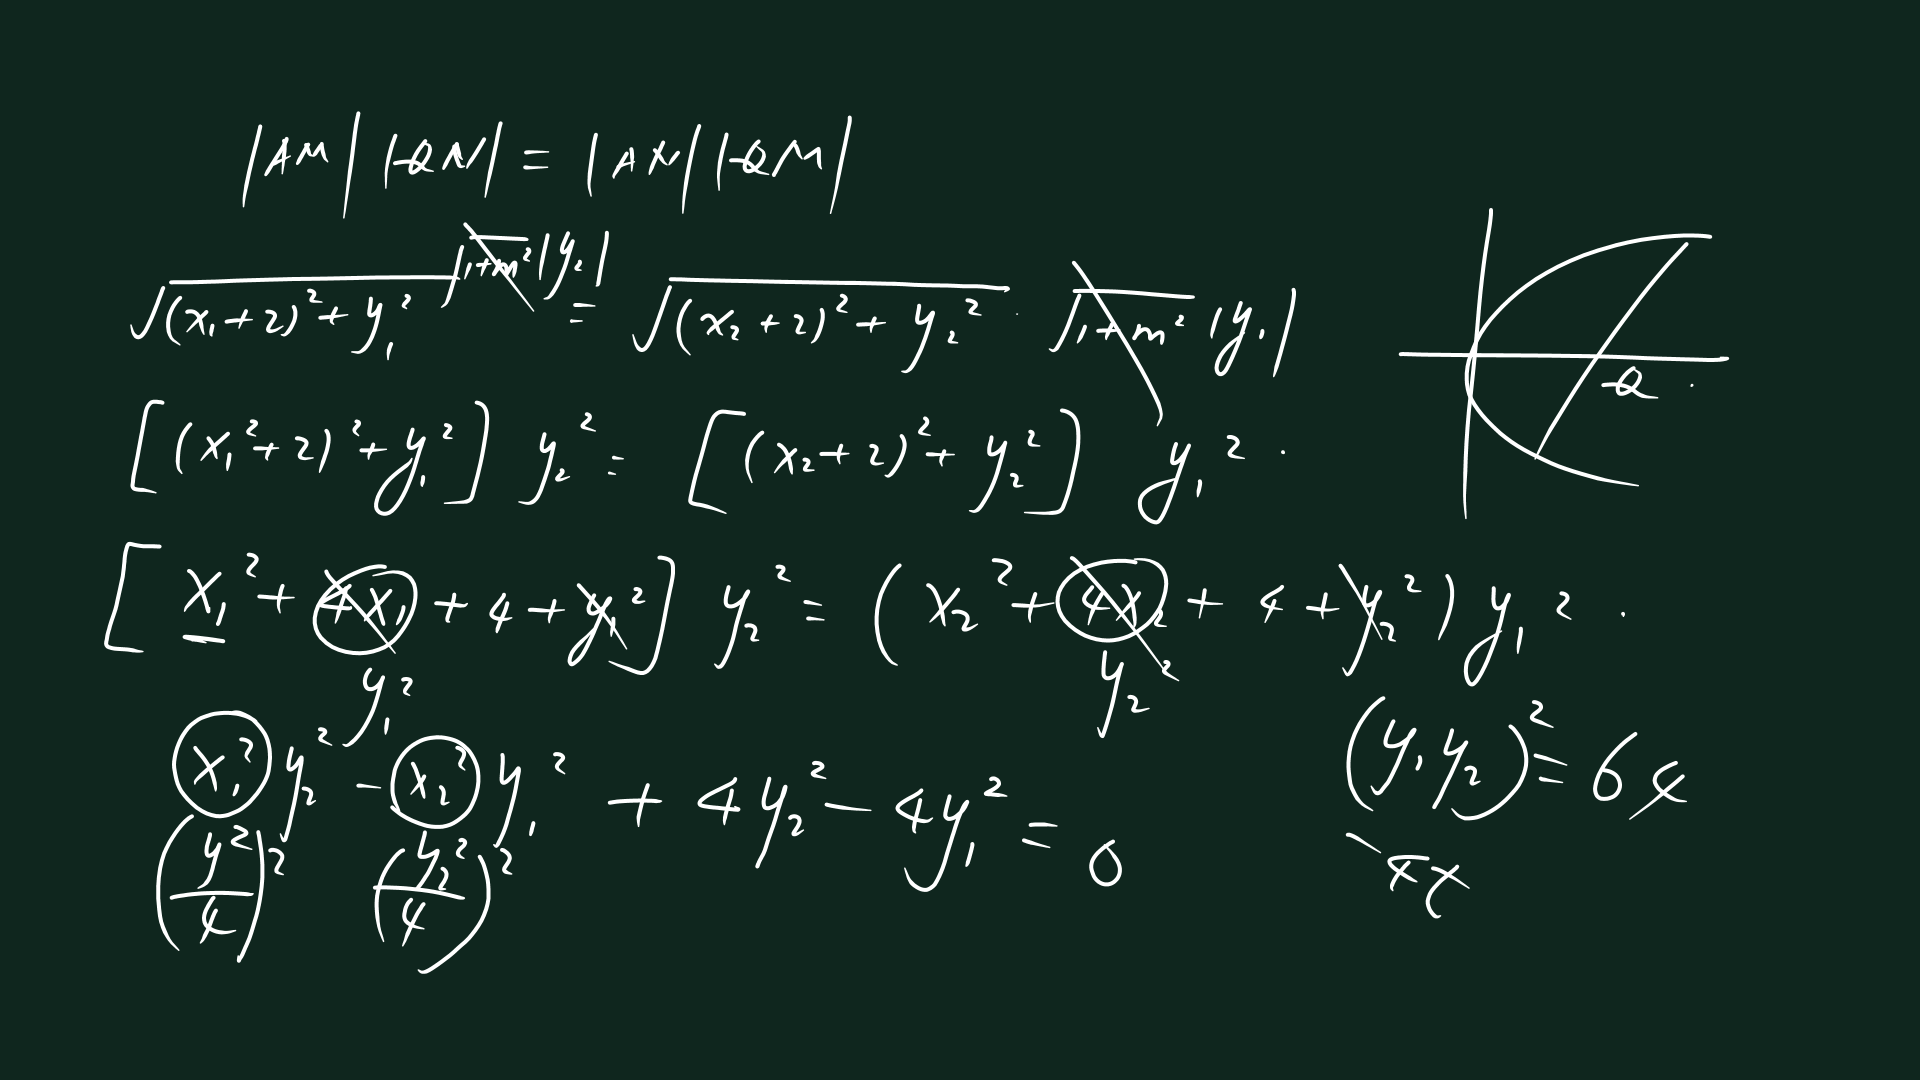 |AM| |QN| = |AN| |QM|
√((x₁+2)² + y₁²) √(1+m²) |y₂| = √((x₂+2)² + y₂²) · √(1+m²) |y₁|
[(x₁²+2)² + y₁²] y₂² = [(x₂+2)² + y₂²] y₁² ·
Q
[x₁² + 4x₁ + 4 + y₁²] y₂² = (x₂² + 4x₂ + 4 + y₂²) y₁² ·
y₁² y₂²
(y₁y₂)² = 64
x₁² y₂² − x₂² y₁² + 4y₂² − 4y₁² = 0
−4t
(y²/4)² (y₂²/4)²